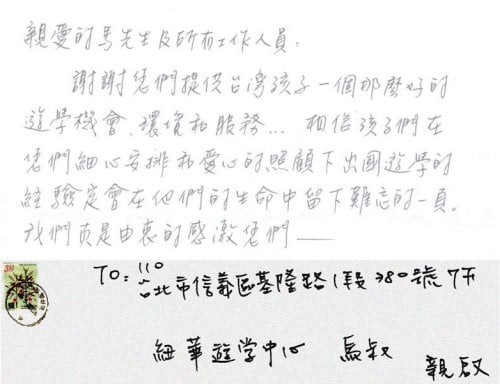 親愛的馬先生及所有工作人員：
謝謝您們提供台灣孩子一個那麼好的
遊學機會、環境和服務... 相信孩子們在
您們細心安排和愛心的照顧下出國遊學的
經驗定會在他們的生命中留下難忘的一頁。
我們真是由衷的感激您們——
TO: 110
台北市信義區基隆路1段380號7F
紐華遊学中心 馬叔
親啟